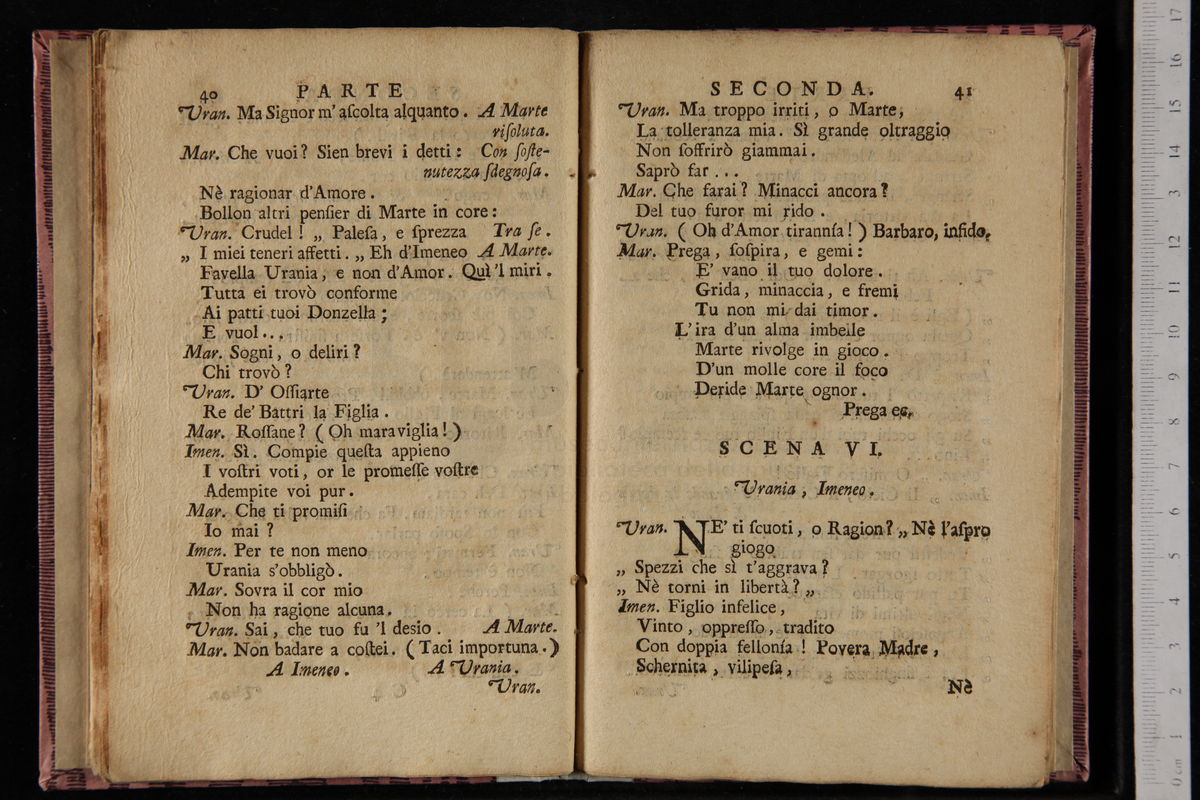 40 PARTE
Uran. Ma Signor m' aſcolta alquanto. A Marte
riſoluta.
Mar. Che vuoi? Sien brevi i detti: Con ſoſte-
nutezza ſdegnoſa.
Nè ragionar d'Amore.
Bollon altri penſier di Marte in core:
Uran. Crudel! „ Paleſa, e ſprezza Tra ſe.
„ I miei teneri affetti. „ Eh d'Imeneo A Marte.
Favella Urania, e non d'Amor. Quì 'l miri.
Tutta ei trovò conforme
Ai patti tuoi Donzella;
E vuol...
Mar. Sogni, o deliri?
Chi trovò?
Uran. D' Oſſiarte
Re de' Battri la Figlia.
Mar. Roſſane? (Oh maraviglia!)
Imen. Sì. Compie queſta appieno
I voſtri voti, or le promeſſe voſtre
Adempite voi pur.
Mar. Che ti promiſi
Io mai?
Imen. Per te non meno
Urania s'obbligò.
Mar. Sovra il cor mio
Non ha ragione alcuna.
Uran. Sai, che tuo fu 'l desio. A Marte.
Mar. Non badare a coſtei. (Taci importuna.)
A Imeneo. A Urania.
Uran.
SECONDA. 41
Uran. Ma troppo irriti, o Marte,
La tolleranza mia. Sì grande oltraggio
Non ſoffrirò giammai.
Saprò far...
Mar. Che farai? Minacci ancora?
Del tuo furor mi rido.
Uran. (Oh d'Amor tirannía!) Barbaro, infido.
Mar. Prega, ſoſpira, e gemi:
E' vano il tuo dolore.
Grida, minaccia, e fremi
Tu non mi dai timor.
L'ira d'un alma imbelle
Marte rivolge in gioco.
D'un molle core il foco
Deride Marte ognor.
Prega ec.
SCENA VI.
Urania, Imeneo.
Uran. NE' ti ſcuoti, o Ragion? „ Nè l'aſpro
giogo
„ Spezzi che sì t'aggrava?
„ Nè torni in libertà? „
Imen. Figlio infelice,
Vinto, oppreſſo, tradito
Con doppia fellonía! Povera Madre,
Schernita, vilipeſa,
Nè
17
16
15
14
13
12
11
10
9
8
7
6
5
4
3
2
1
0 cm